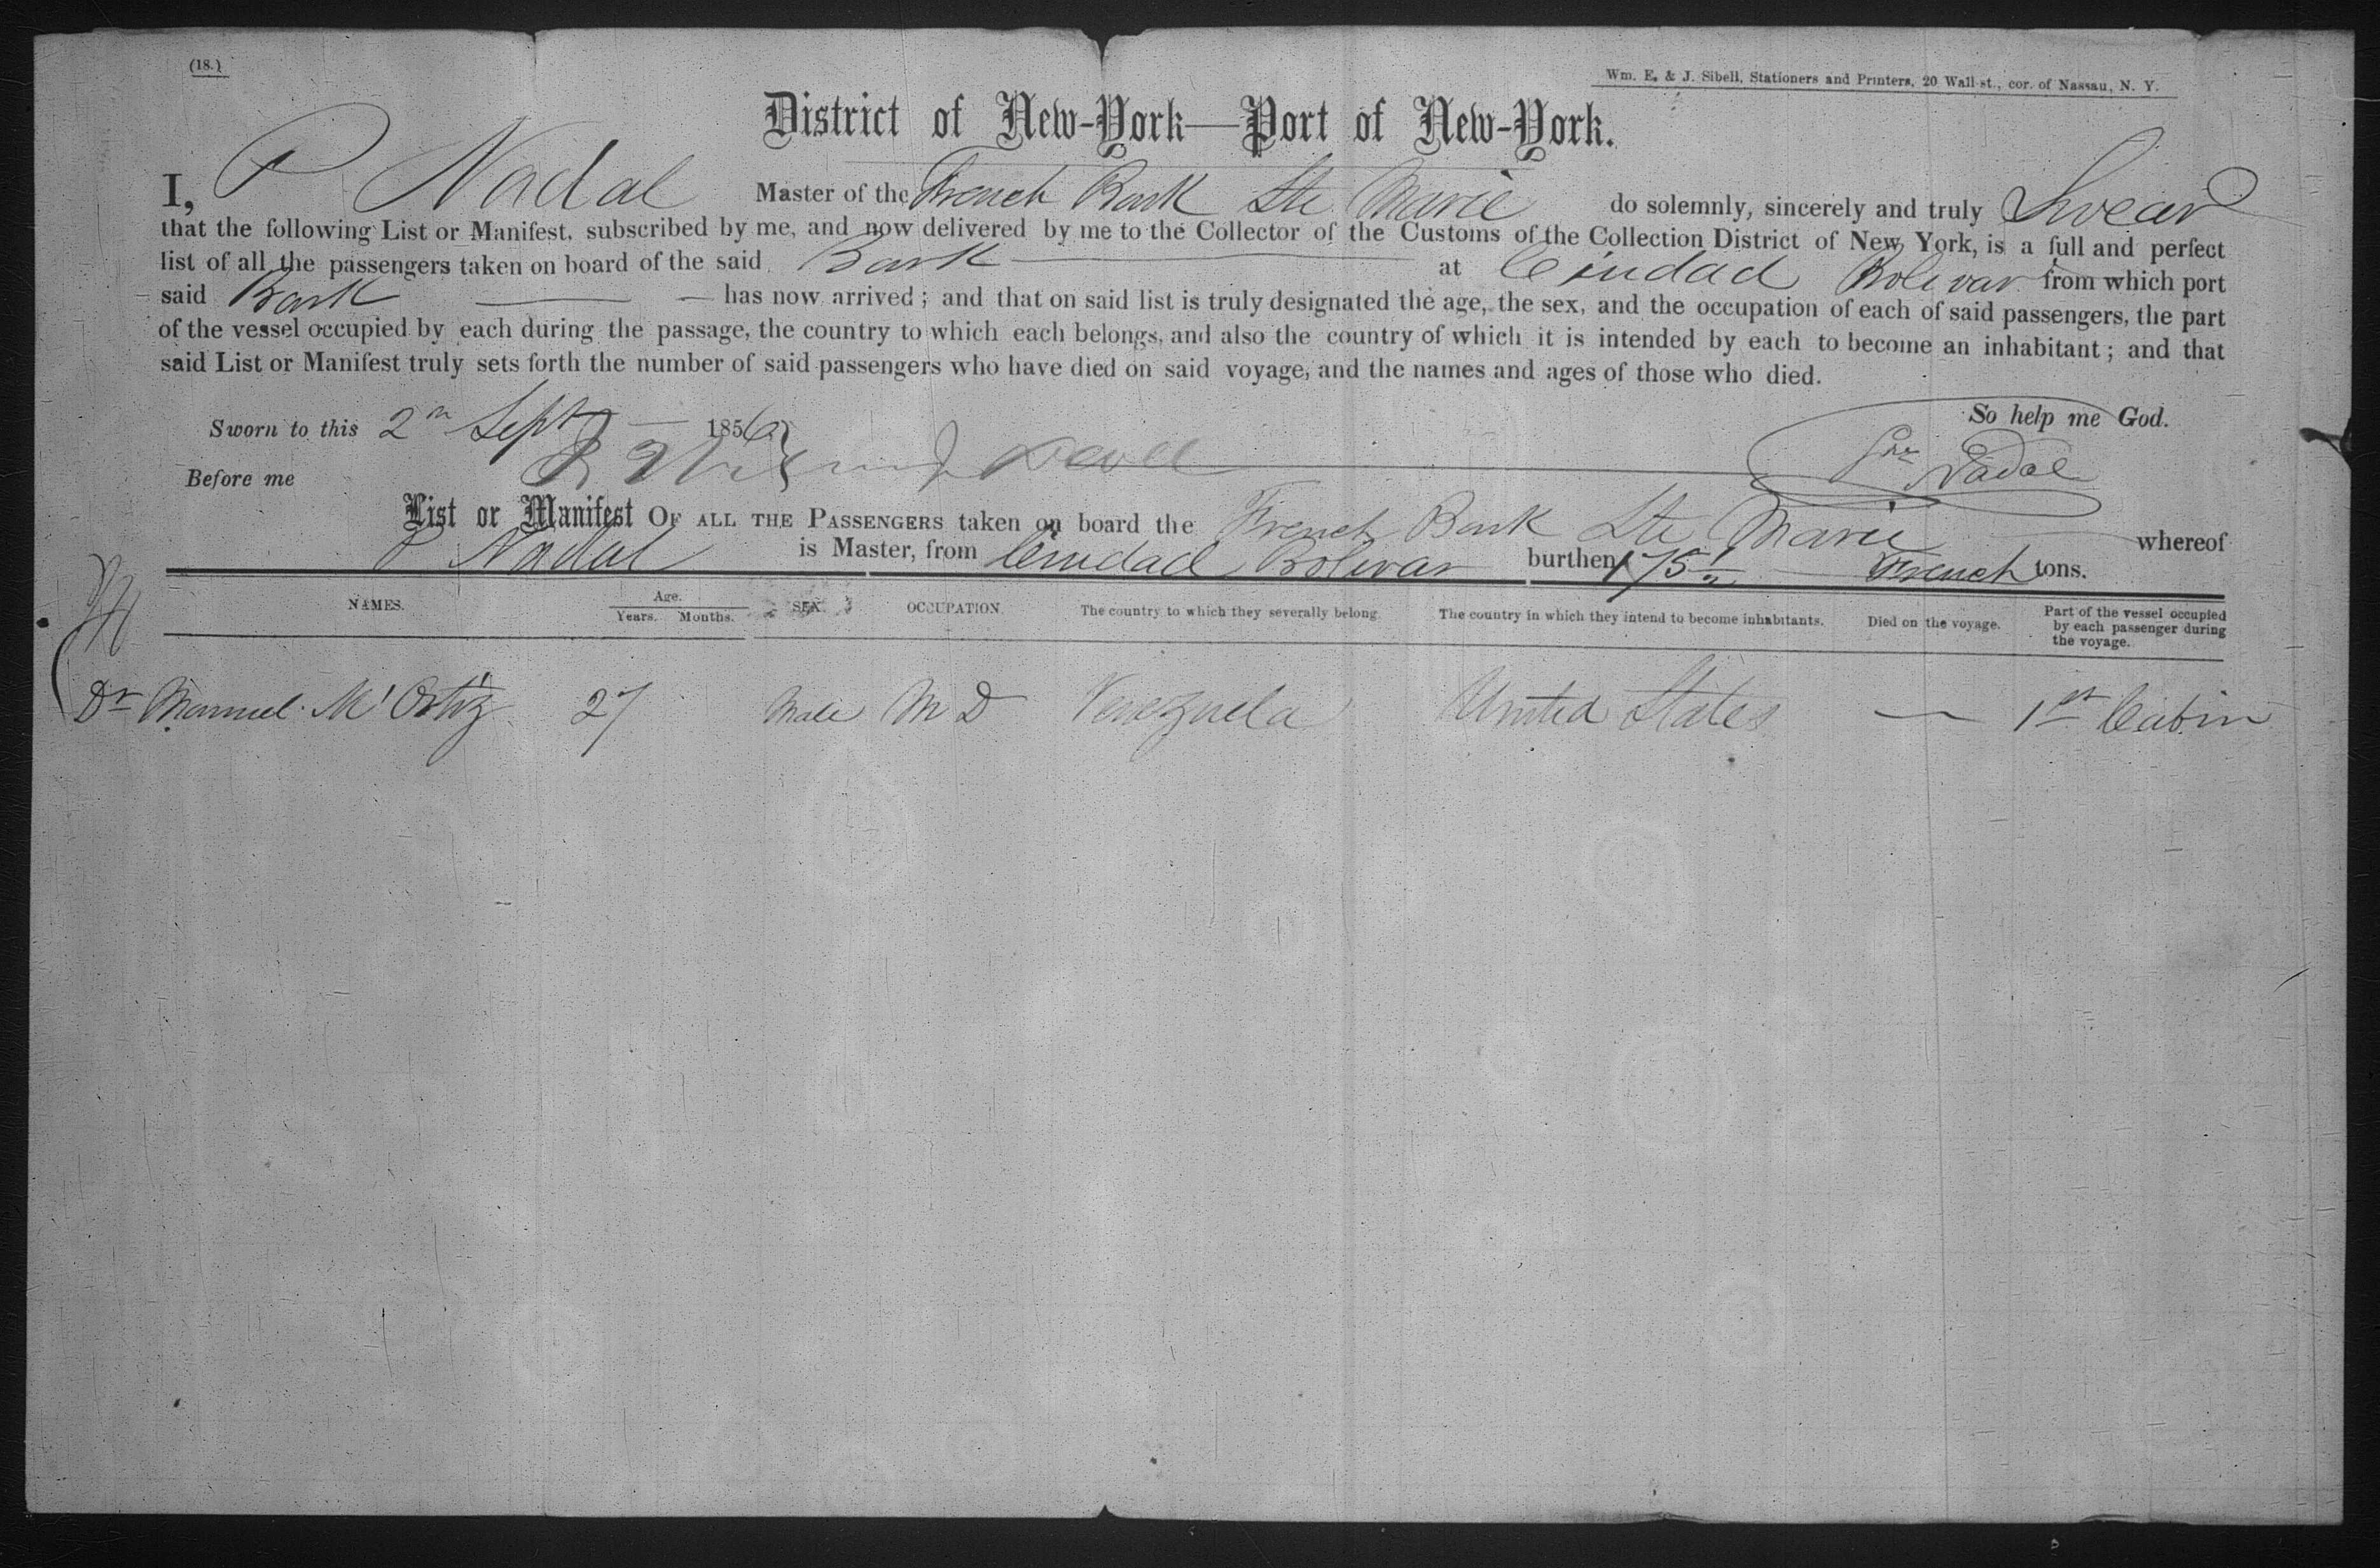 (18.)
Wm. E. & J. Sibell, Stationers and Printers, 20 Wall-st., cor. of Nassau, N. Y.
District of New-York—Port of New-York.
I, P Nadal Master of the French Bark Ste Marie do solemnly, sincerely and truly Swear
that the following List or Manifest, subscribed by me, and now delivered by me to the Collector of the Customs of the Collection District of New York, is a full and perfect
list of all the passengers taken on board of the said Bark at Ciudad Bolivar from which port
said Bark has now arrived; and that on said list is truly designated the age, the sex, and the occupation of each of said passengers, the part
of the vessel occupied by each during the passage, the country to which each belongs, and also the country of which it is intended by each to become an inhabitant; and that
said List or Manifest truly sets forth the number of said passengers who have died on said voyage, and the names and ages of those who died.
So help me God.
Sworn to this 2n Sept 1856
Before me
Nadal
List or Manifest OF ALL THE PASSENGERS taken on board the French Bark Ste Marie whereof
P Nadal is Master, from Ciudad Bolivar burthen 175 1/2 French tons.
NAMES. Age. Years. Months. SEX. OCCUPATION. The country to which they severally belong. The country in which they intend to become inhabitants. Died on the voyage. Part of the vessel occupied by each passenger during the voyage.
Dr Manuel M' Ortiz 27 Male M D Venezuela United States — 1st Cabin